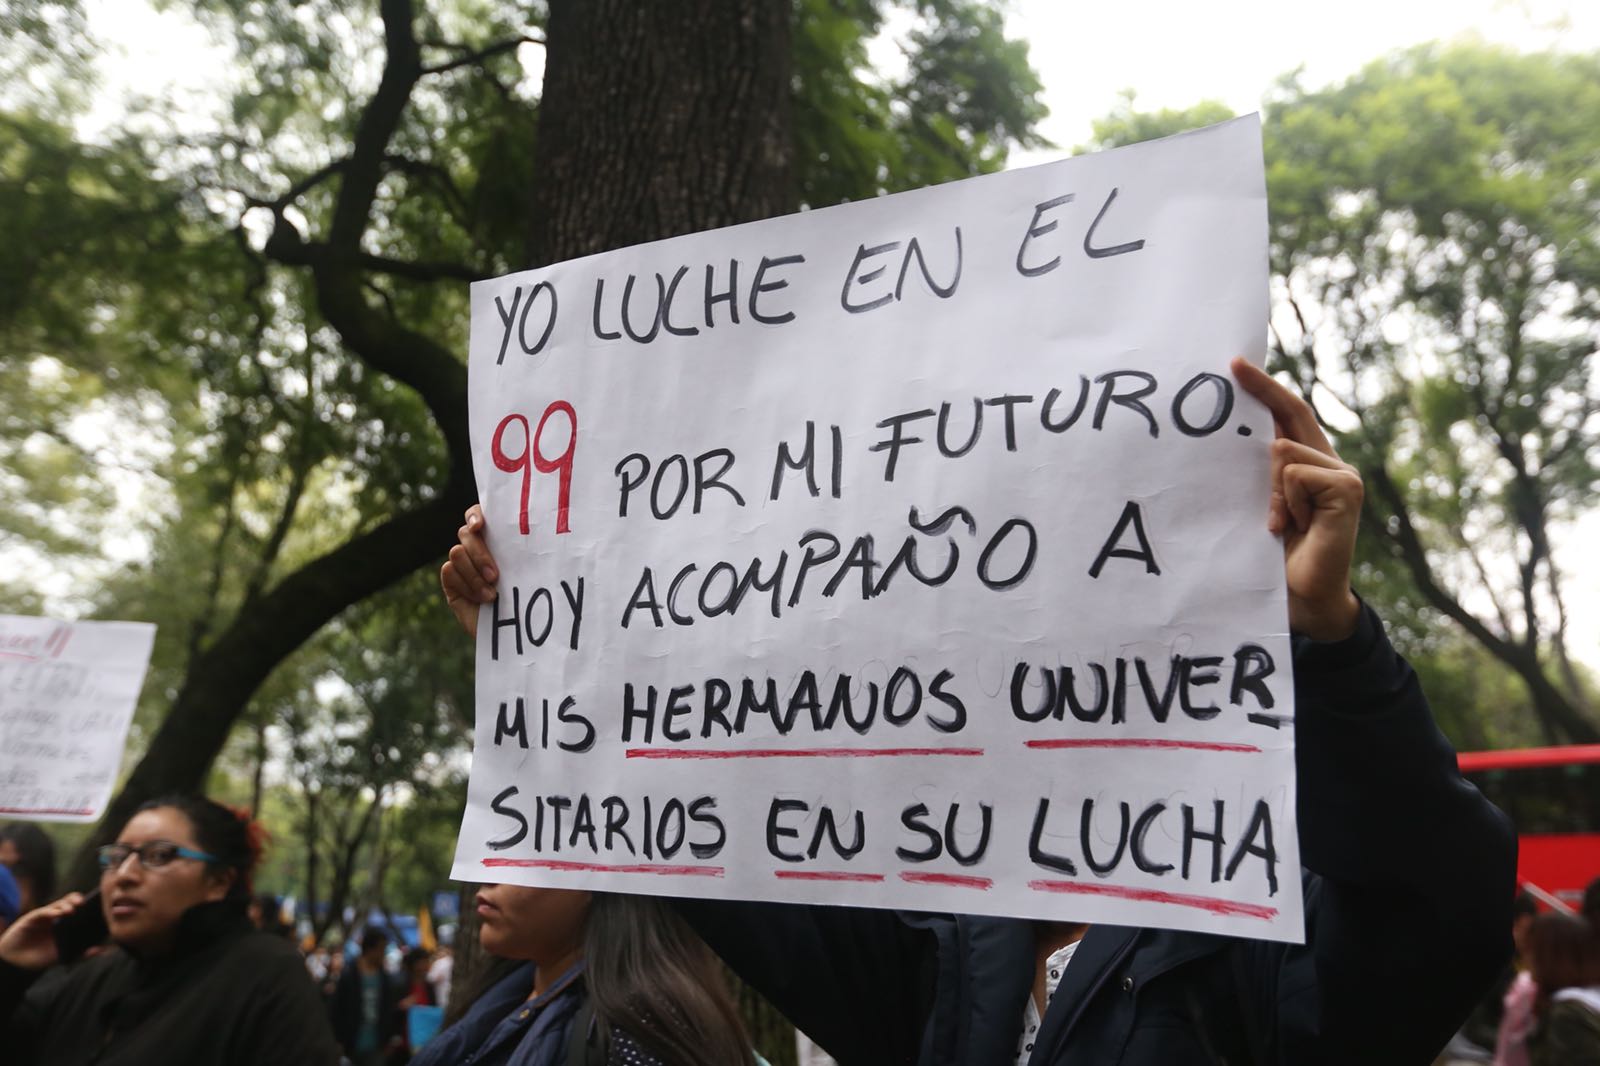 YO LUCHE EN EL
99 POR MI FUTURO.
HOY ACOMPAÑO A
MIS HERMANOS UNIVER
SITARIOS EN SU LUCHA